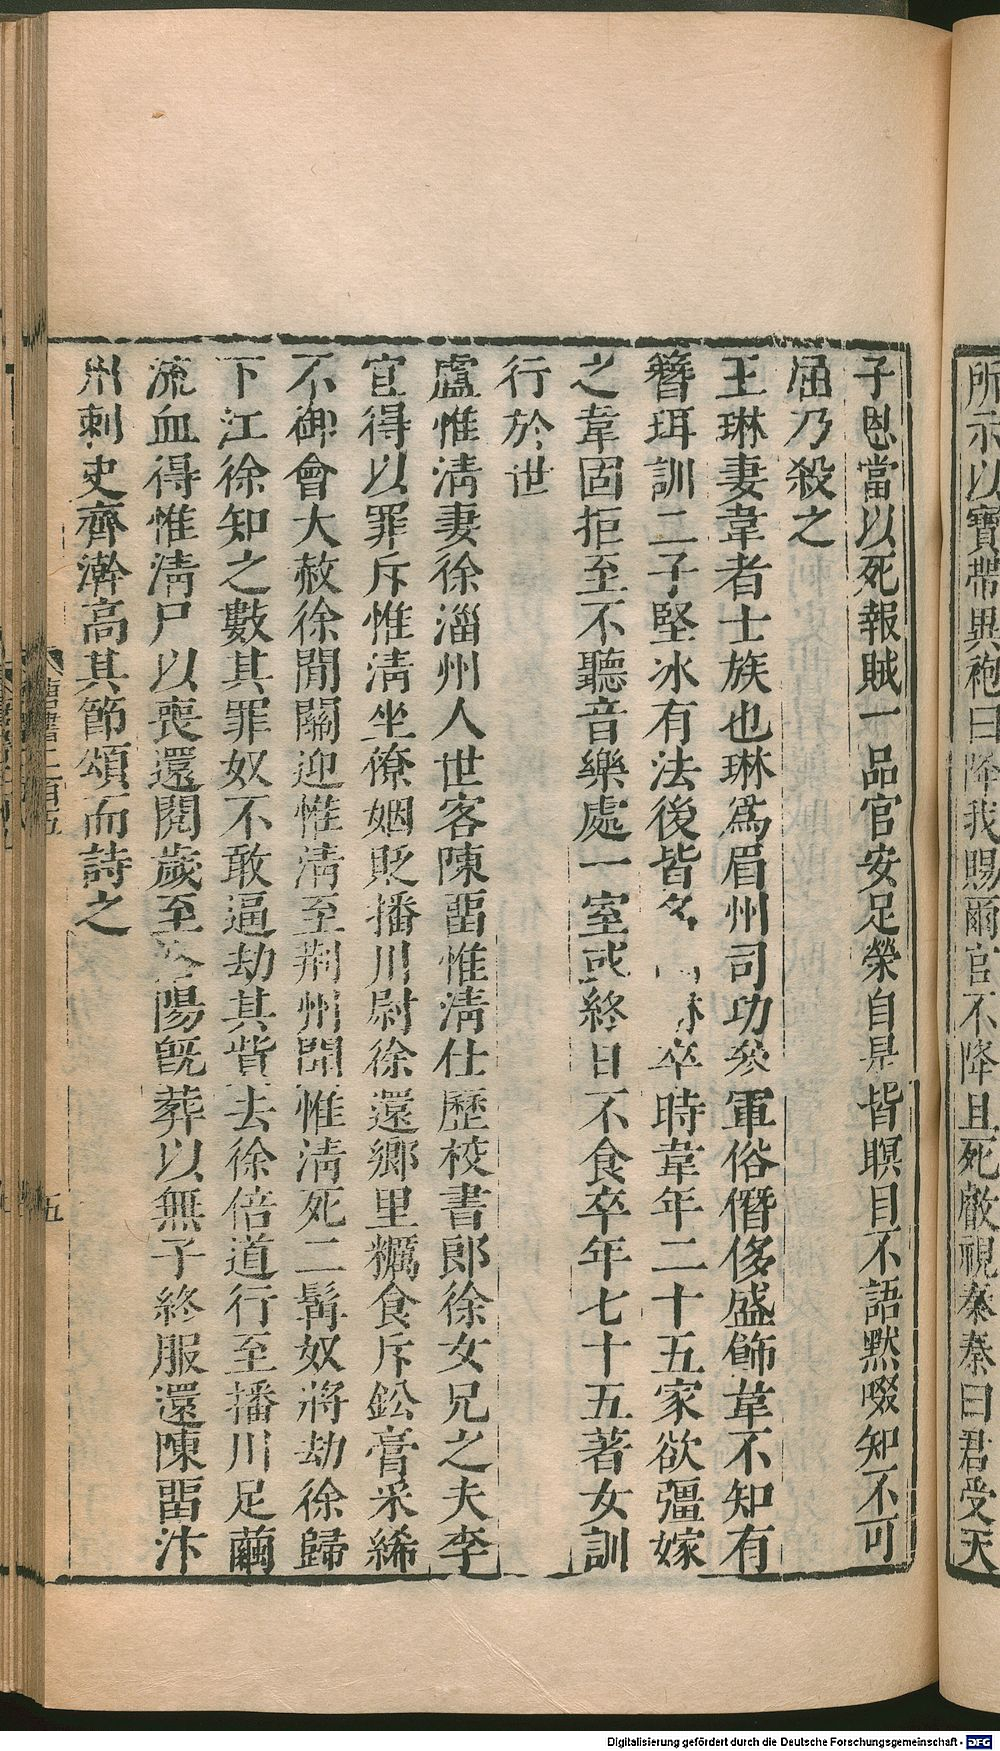 所示以寶帶異袍曰降我賜爾官不降且死敵視秦秦曰君受天
子恩當以死報賊一品官安足榮自是皆瞑目不語黙啜知不可
屈乃殺之
王琳妻韋者士族也琳爲眉州司功參軍俗僭侈盛飾韋不知有
簪珥訓二子堅冰有法後皆名 琳卒時韋年二十五家欲彊嫁
之韋固拒至不聽音樂處一室或終日不食卒年七十五著女訓
行於世
盧惟淸妻徐淄州人世客陳畱惟淸仕歷校書郎徐女兄之夫李
官得以罪斥惟淸坐僚姻貶播川尉徐還鄉里糲食斥鈆膏采絺
不御會大赦徐閒關迎惟淸至荆州聞惟淸死二髯奴將劫徐歸
下江徐知之數其罪奴不敢逼劫其貲去徐倍道行至播川足繭
流血得惟淸尸以喪還閱歲至洛陽旣葬以無子終服還陳畱汴
州刺史齊澣高其節頌而詩之
唐書二百五
五
Digitalisierung gefördert durch die Deutsche Forschungsgemeinschaft - DFG